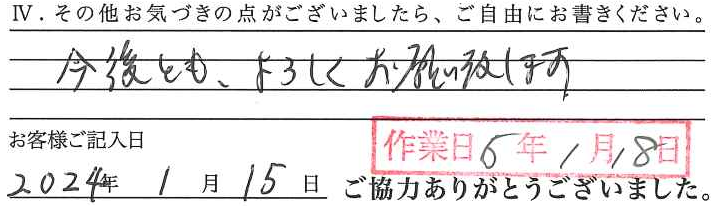 Ⅳ．その他お気づきの点がございましたら、ご自由にお書きください。
今後とも、よろしくお願い致します
お客様ご記入日
作業日6年1月18日
2024年1月15日
ご協力ありがとうございました。